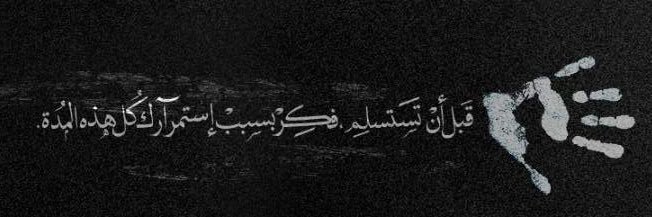 قَبل أنْ تَستَسلِم . فكِرْ بسببْ إستمرآرك كُل هذه المُدة .